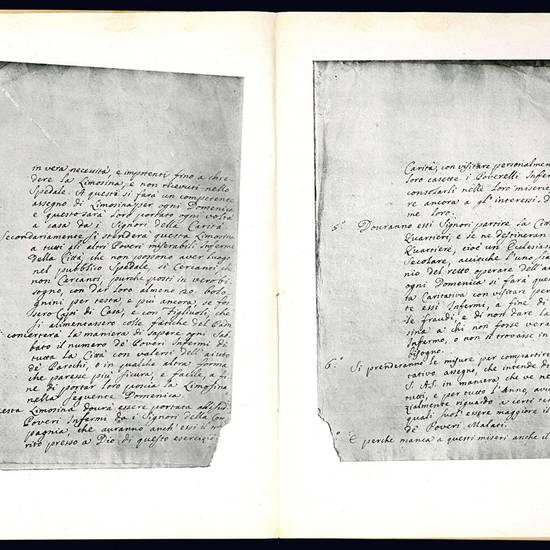 in vera necessità, e impotenti fino a chie-
dere la Limosina, e non ricevuti nello
Spedale. A questi si farà un competente
assegno di Limosina per ogni Domenica
e questo sarà loro portato ogni volta
a casa da i Signori della Carità
Secondariamente si stenderà questa Limosina
a tutti gli altri Poveri miserabili Infermi
della Città, che non possono aver luogo
nel pubblico Spedale, sì Cercanti, che
non Cercanti, purchè posti in vero bi-
sogno, con dar loro almeno 20. bolo-
gnini per testa, e più ancora se fos-
sero Capi di Casa, e con Figliuoli, che
si alimentassero colle fatiche del Padre
concerterà la maniera di sapere ogni Sab-
bato il numero de' Poveri Infermi di
tutta la Città con valersi dell'aiuto
de' Parochi, o in qualche altra forma
che paresse più sicura e facile, a fi-
ne di portar loro poscia la Limosina
nella seguente Domenica
esta Limosina dovrà essere portata alle
Poveri Infermi da i Signori della Com-
pagnia, che avranno anch'essi il me-
rito presso a Dio di questo esercizio
Carità, con visitare personalme
loro casette i Poverelli Infer
consolarli nelle loro miserie
re ancora a gl'interessi d
me loro.
5.º Dovranno essi Signori partire la Cit
Quartieri, e se ne destineran
Quartiere, cioè un Ecclesias
Secolare, acciochè l'uno sia
nio del retto operare dell'a
ogni Domenica si farà ques
ta Caritativa con visitare
te essi Infermi, a fine di
le fraudi, e di non dare la
sina a chi non fosse vera
Infermo, o non si trovasse in
bisogno.
6.º Si prenderanno le misure per compartire
cativo assegno, che intende di
S. A. S. in maniera, che ve ne
tutti, e per tutto l'Anno, av
zialmente riguardo a certi te
quali suol essere maggiore il
de' Poveri Malati.
E perchè manca a questi miseri anche il